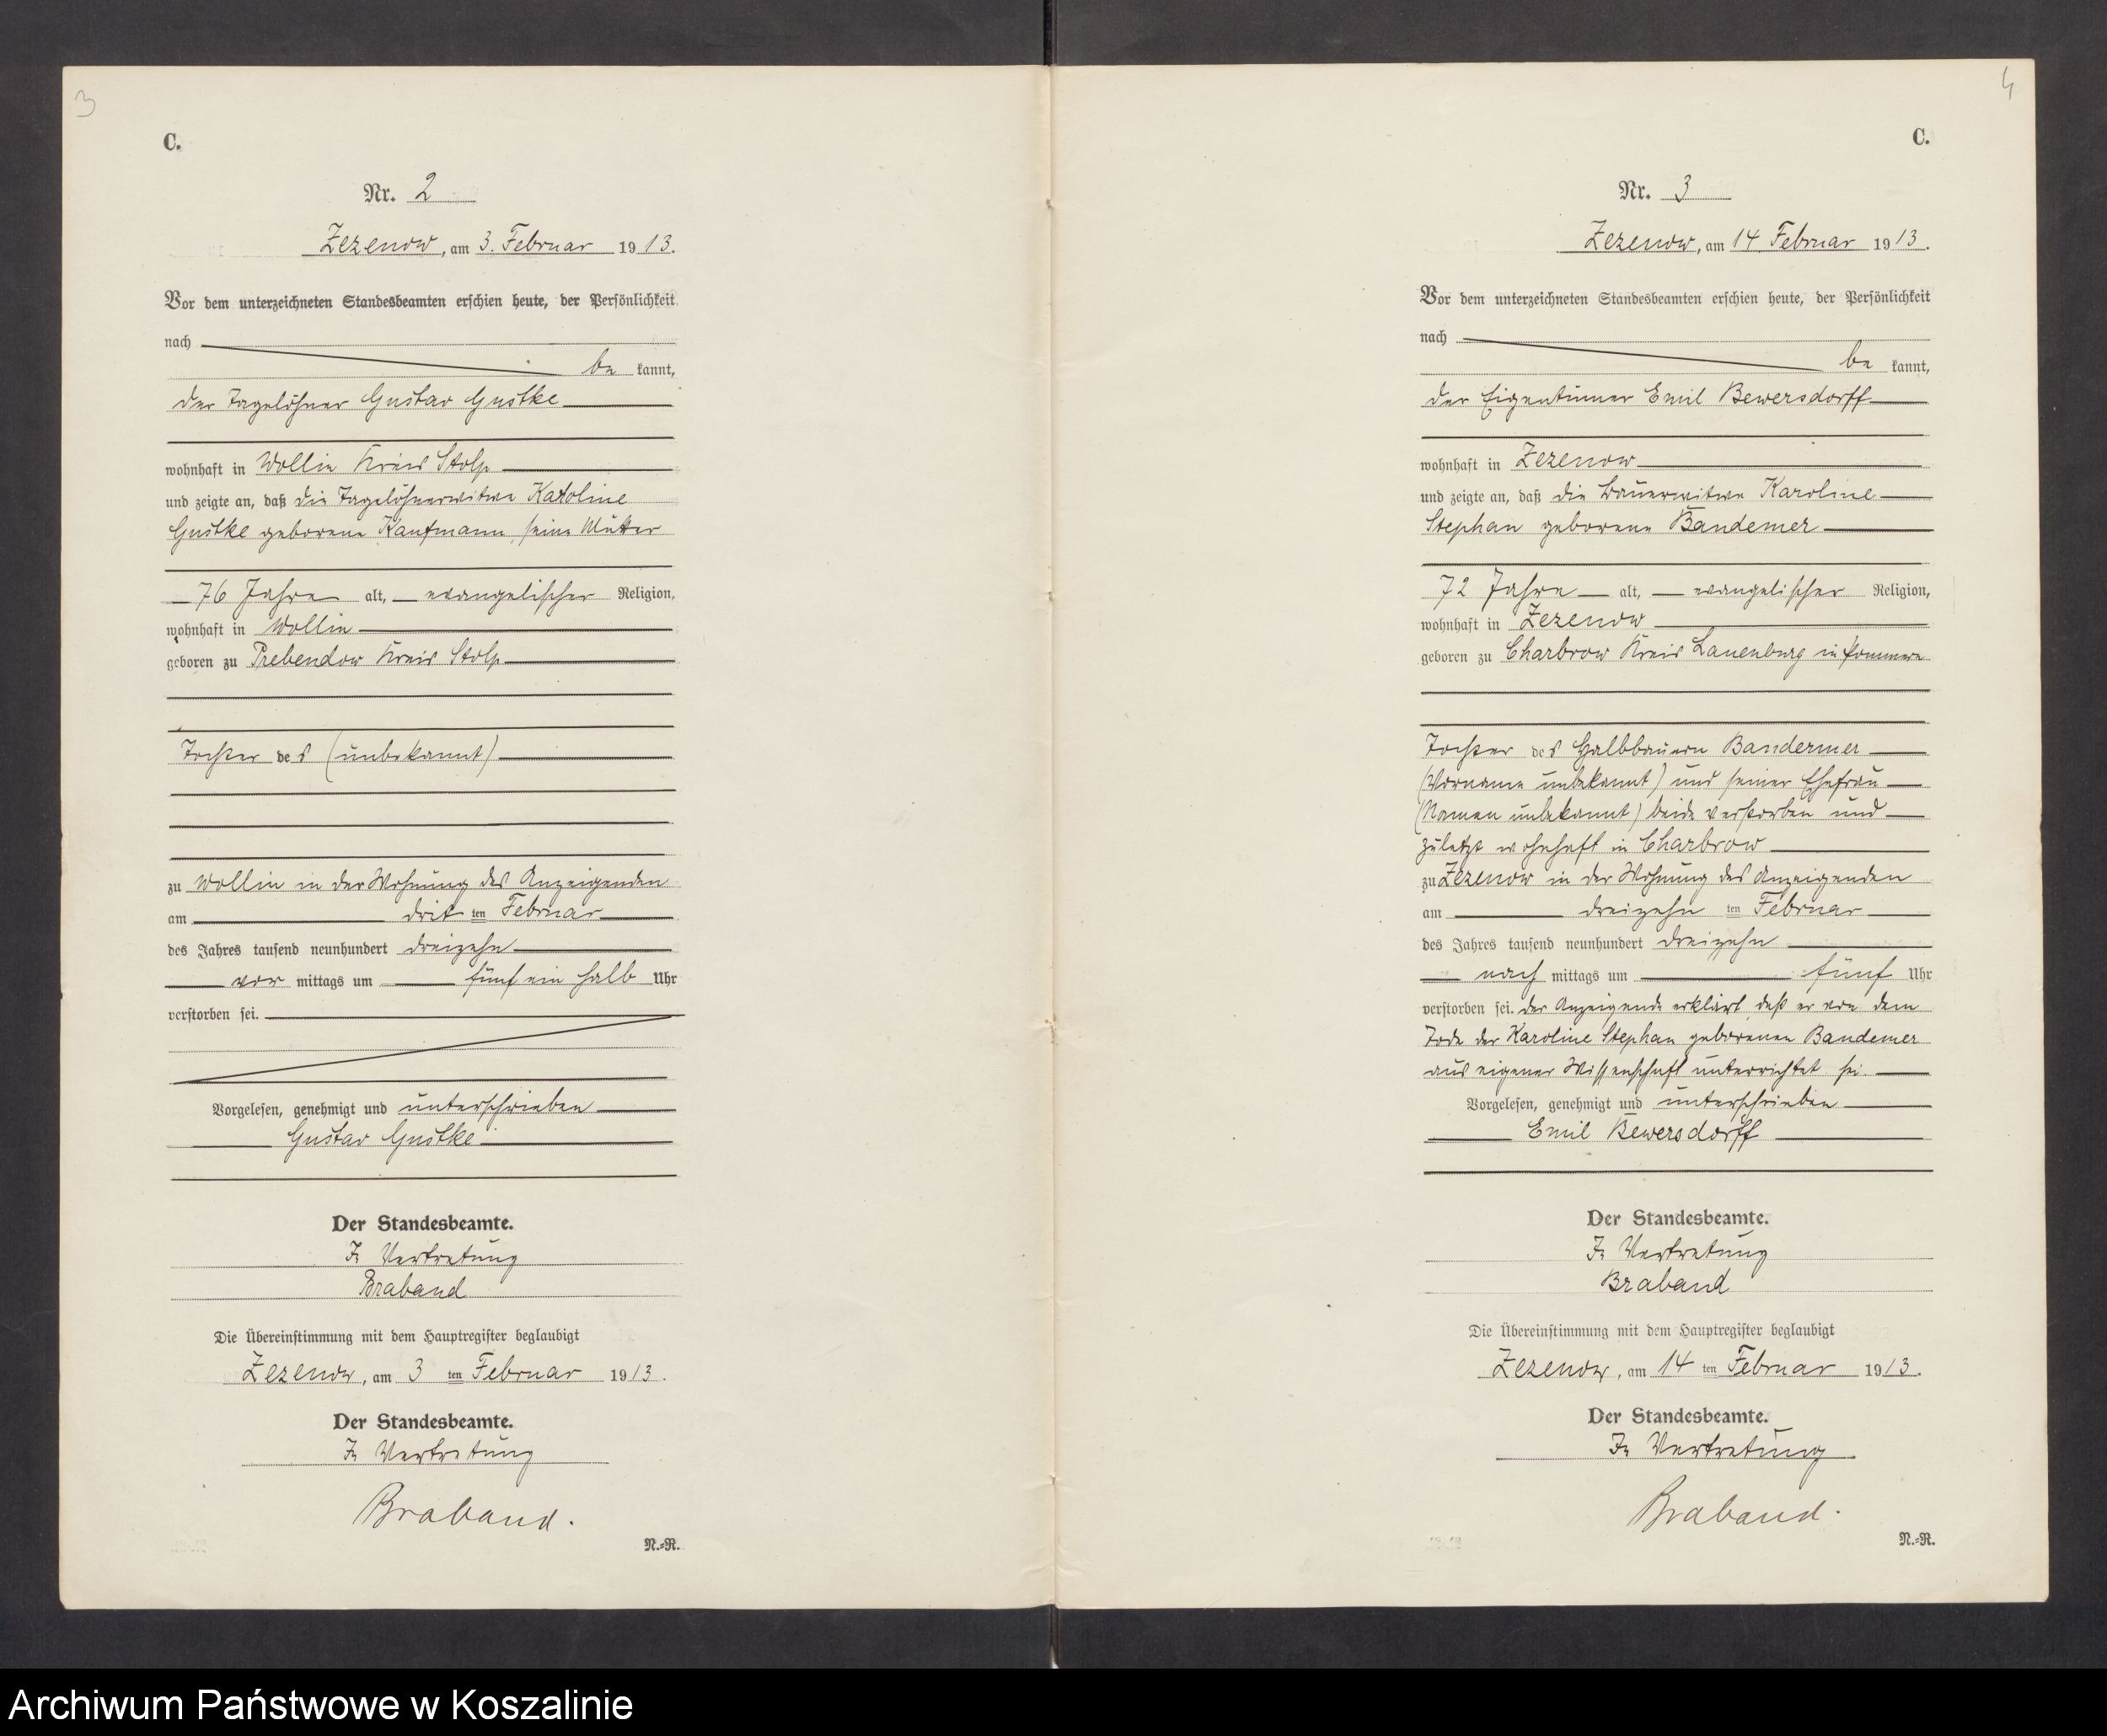 3
C.
Nr. 2
Zezenow, am 3. Februar 1913.
Vor dem unterzeichneten Standesbeamten erschien heute, der Persönlichkeit
nach
be kannt,
der Tagelöhner Gustav Gustke
wohnhaft in Wollin Kreis Stolp
und zeigte an, daß die Tagelöhnerwitwe Karoline
Gustke geborene Kaufmann, seine Mutter
76 Jahre alt, evangelischer Religion,
wohnhaft in Wollin
geboren zu Prebendow Kreis Stolp
Tochter des (unbekannt)
zu Wollin in der Wohnung des Anzeigenden
am drit ten Februar
des Jahres tausend neunhundert dreizehn
vor mittags um fünf ein halb Uhr
verstorben sei.
Vorgelesen, genehmigt und unterschrieben
Gustav Gustke
Der Standesbeamte.
In Vertretung
Braband
Die Übereinstimmung mit dem Hauptregister beglaubigt
Zezenow, am 3 ten Februar 1913.
Der Standesbeamte.
In Vertretung
Braband.
N.=R.
4
C.
Nr. 3
Zezenow, am 14 Februar 1913.
Vor dem unterzeichneten Standesbeamten erschien heute, der Persönlichkeit
nach
be kannt,
der Eigentümer Emil Bewersdorff
wohnhaft in Zezenow
und zeigte an, daß die Bauerwitwe Karoline
Stephan geborene Bandemer
72 Jahre alt, evangelischer Religion,
wohnhaft in Zezenow
geboren zu Charbrow Kreis Lauenburg in Pommern
Tochter des Halbbauern Bandermer
(Vorname unbekannt) und seiner Ehefrau
(Namen unbekannt) beide verstorben und
zuletzt wohnhaft in Charbrow
zu Zezenow in der Wohnung des Anzeigenden
am dreizehn ten Februar
des Jahres tausend neunhundert dreizehn
nach mittags um fünf Uhr
verstorben sei. Der Anzeigende erklärt daß er von dem
Tode der Karoline Stephan geborenen Bandemer
aus eigener Wissenschaft unterrichtet sei.
Vorgelesen, genehmigt und unterschrieben
Emil Bewersdorff
Der Standesbeamte.
In Vertretung
Braband
Die Übereinstimmung mit dem Hauptregister beglaubigt
Zezenow, am 14 ten Februar 1913.
Der Standesbeamte.
In Vertretung
Braband.
N.=R.
Archiwum Państwowe w Koszalinie